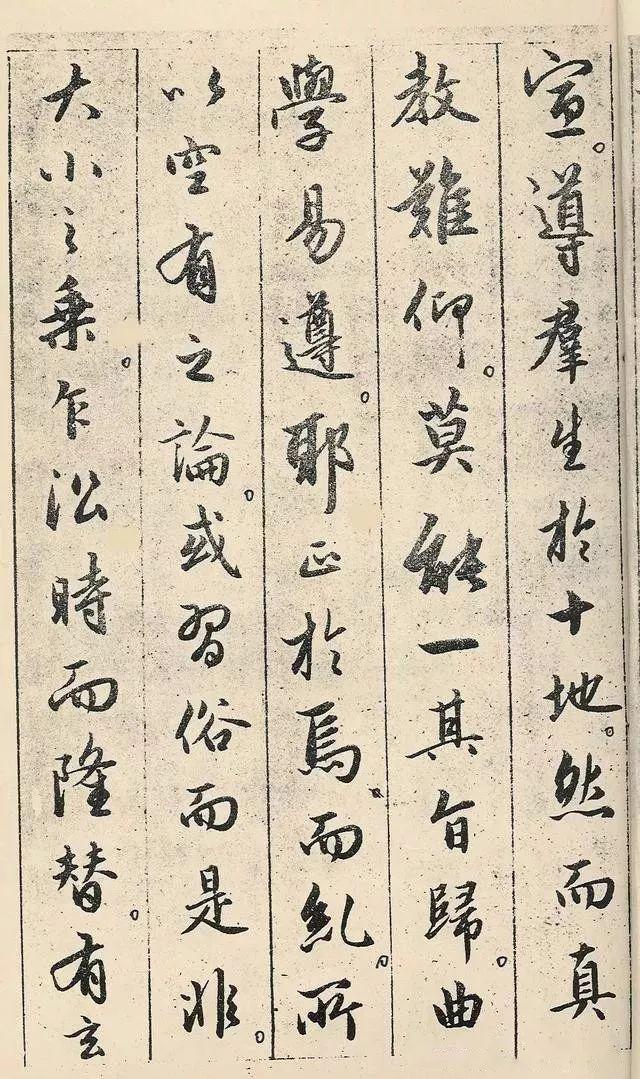 宣。導羣生於十地。然而真
教難仰。莫能一其旨歸。曲
學易遵。耶正於焉而糺。所
以空有之論。或習俗而是非。
大小之乗。乍㳂時而隆替。有玄